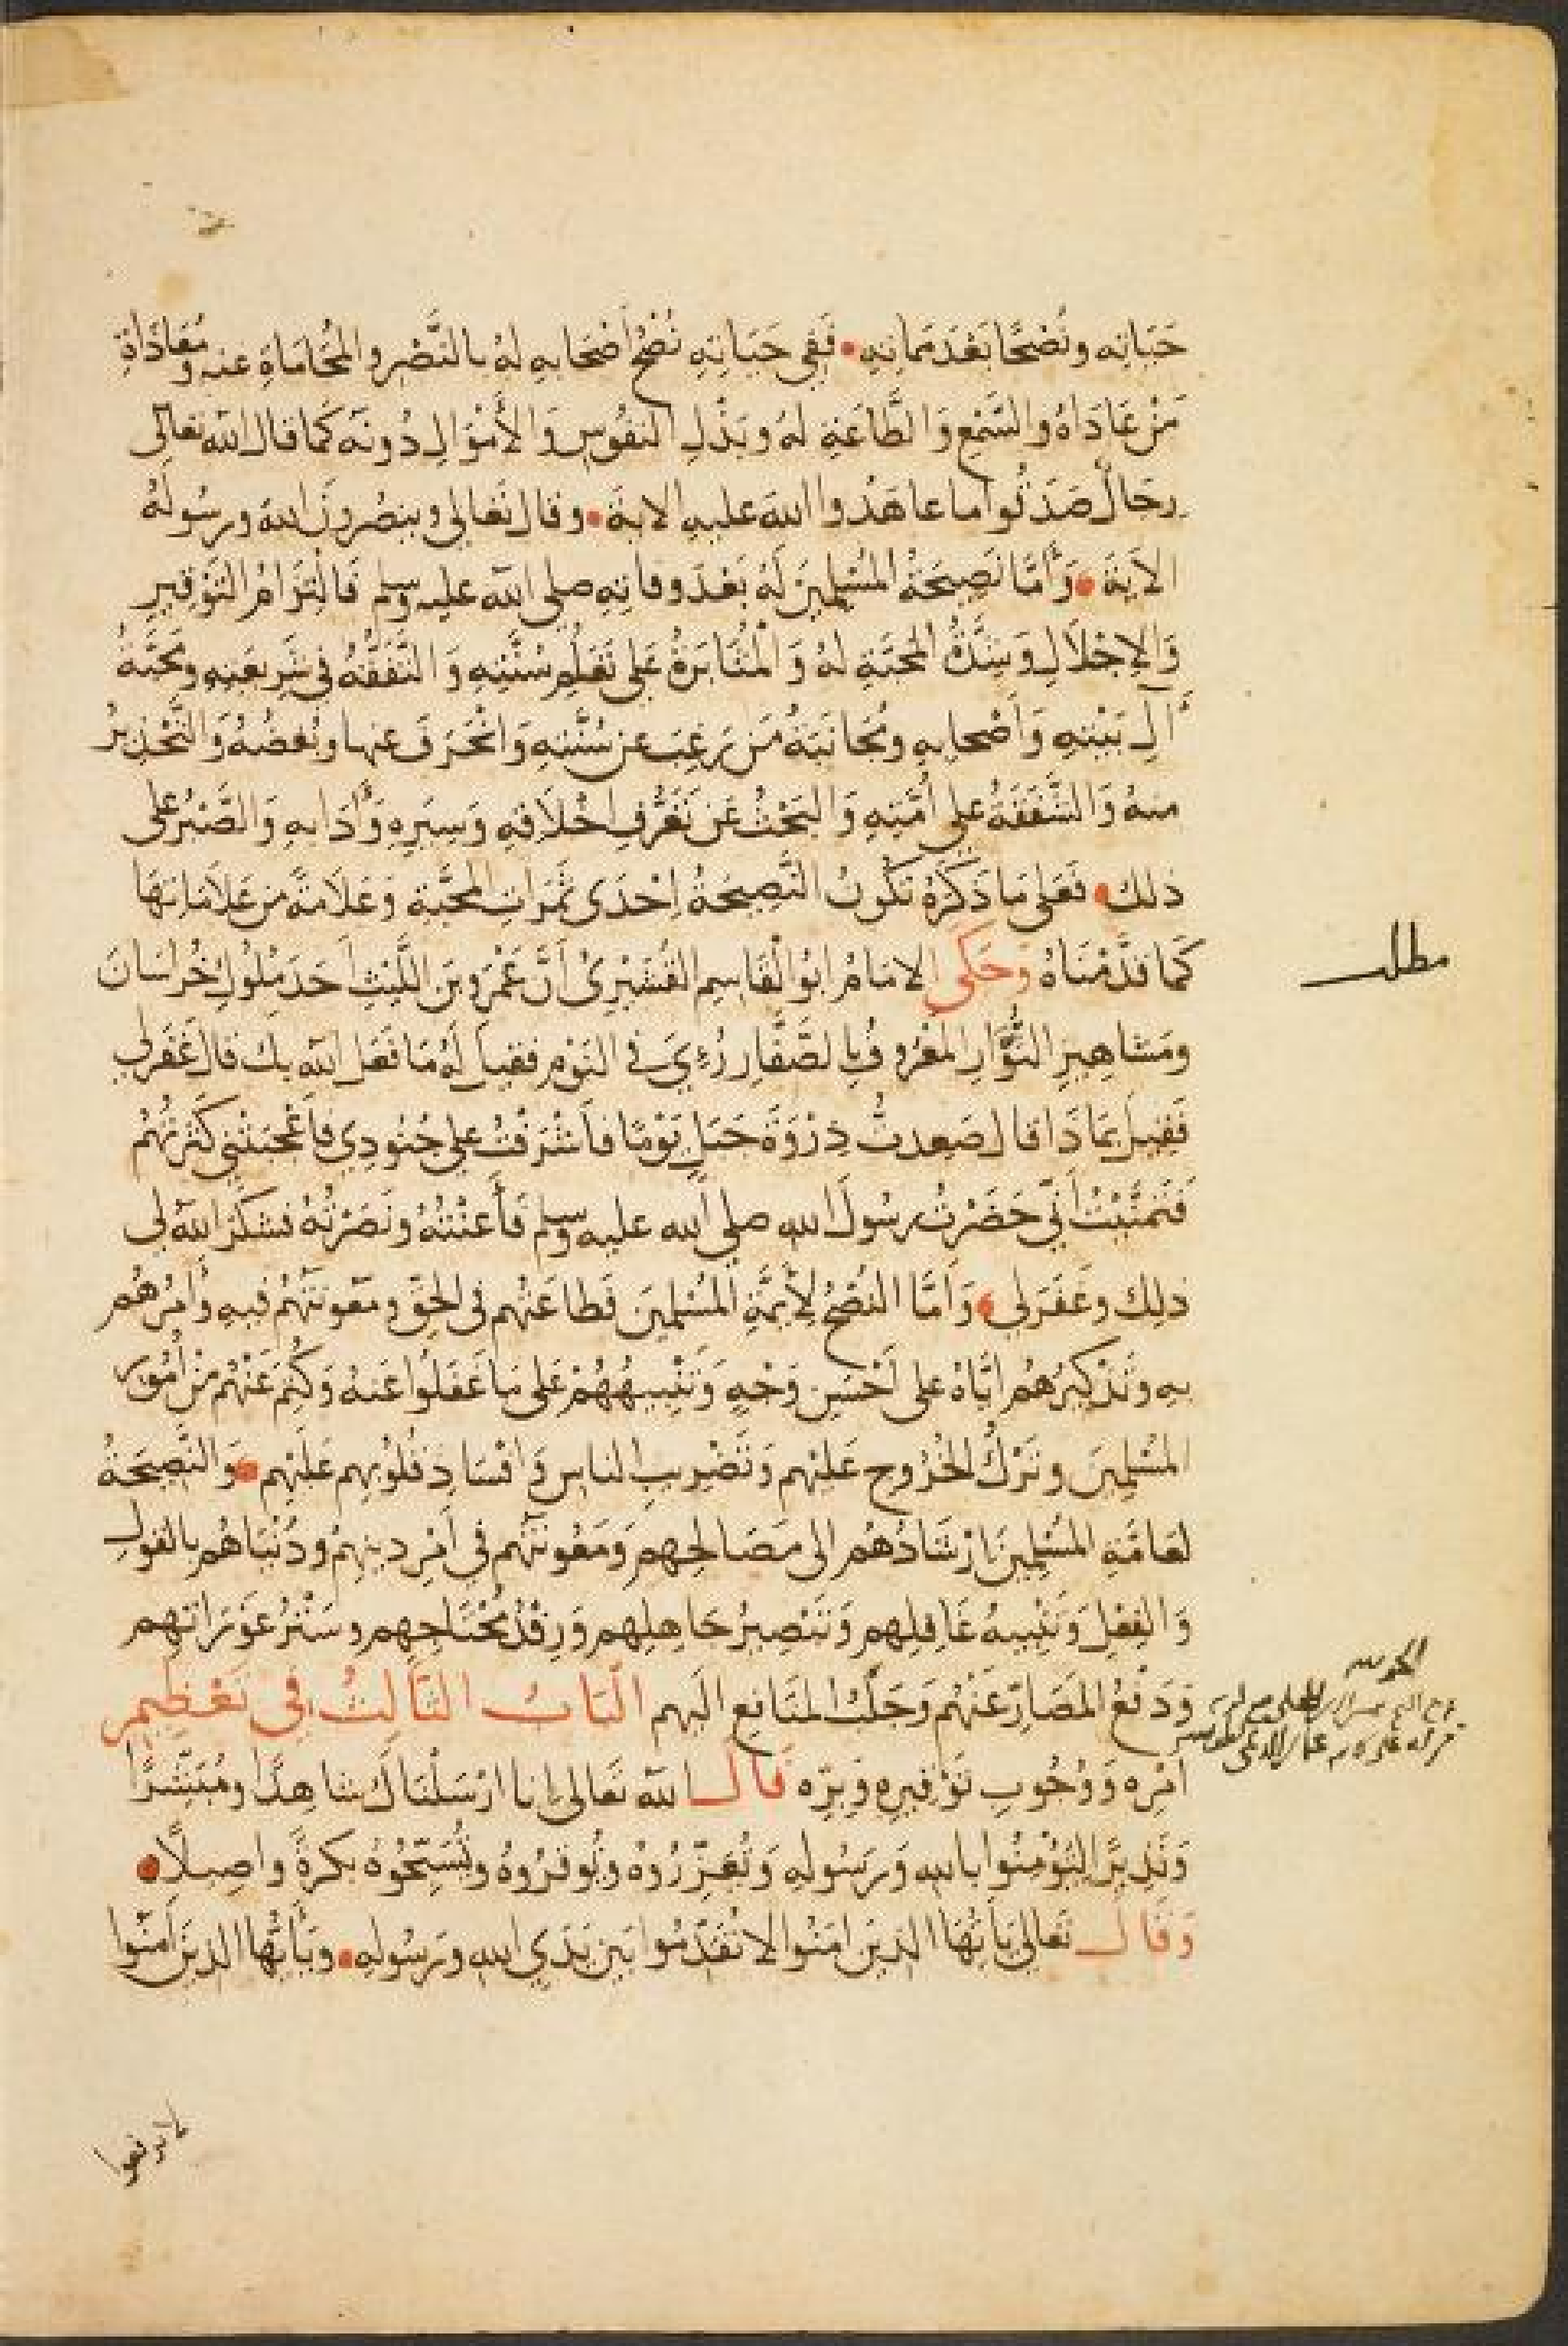 حَيَاتِه ونُصْحًا بَعْدَ مَمَاتِهِ • فَفِي حَيَاتِهِ نُصْحُ أَصْحَابِهِ لَهُ بالنَّصْرِ والمُحَامَاةِ عنه ومُعَادَاةِ
مَنْ عَادَاهُ والسَّمْعِ وَالطَّاعَةِ لهُ وبَذْلِ النفُوسِ وَالأَمْوَالِ دُونَهُ كَمَا قال الله تعالى
رجَالٌ صَدَقُوا ما عاهَدُوا اللهَ عليهِ الاية • وقال تَعَالى وينصُرُونَ اللهَ ورسُولَهُ
الايَةَ • وَأَمَّا نَصِيحَةُ المُسْلِمِينَ لَهُ بَعْدَ وفاتِهِ صلى الله عليه وسلم فَالْتِزَامُ التَّوْقِيرِ
وَالإِجْلَالِ وَشِدَّةُ المَحَبَّةِ لهُ وَالْمُثَابَرَةُ عَلى تَعَلُّمِ سُنَّتِهِ وَالتَّفَقُّهُ في شَرِيعَتِهِ ومَحَبَّةُ
آلِ بَيْتِهِ وَأَصْحابِهِ ومُجَانَبَةُ مَن رَغِبَ عن سُنَّتِهِ وَانْحَرَفَ عنها وبُغضُهُ وَالتَّحْذِيرُ
منهُ وَالشَّفَقَةُ على أُمَّتِهِ وَالبَحْثُ عَن تَعَرُّفِ اخْلَاقِهِ وَسِيَرِهِ وَأَدَابِهِ وَالصَّبْرُ على
ذلك • فَعَلى مَا ذَكَرَهُ تَكُونُ النَّصِيحَةُ اِحْدَى ثَمَرَاتِ المَحَبَّةِ وَعَلَامَةً من عَلَامَاتِهَا
كَمَا قَدَّمْنَاهُ وحَكى الامَامُ ابوُالْقَاسِمِ القُشَيْرِيُّ أَنَّ عَمْرَو بنَ اللَّيْثِ أَحَدَ مُلُوكِ خُرَاسَانَ
مطلب
ومَشَاهِيرِ الثُّوَّارِ المَعْرُوفُ بالصَّفَّارِ رُءِيَ في النَوْمِ فقيلَ لَهُ مَا فَعَلَ الله بك قال غَفَرَ لي
فَقِيلَ بِمَاذَا قال صَعِدتُ ذِرْوَةَ جَبَلٍ يَوْمًا فأَشْرَفْتُ على جُنودِي فأَعْجَبَتْني كَثرَتُهُمْ
فَتَمَنَّيْتُ أَنِّي حَضَرْتُ رسُولَ الله صلى الله عليه وسلم فَأَعَنْتُهُ ونَصَرْتُهُ فشكَرَ الله لي
ذلِك وغَفَرَ لي • وَأَمَّا النُصْحُ لأَئِمَّةِ المُسْلِمِينَ فَطاعَتُهم في الحَقِّ ومَعُونَتُهُمْ فيه وأَمْرُهُم
بِهِ وتَذْكِيرُهُم ايَّاهُ على أَحْسَنِ وَجْهٍ وَتَنْبِيهُهُمْ عَلى مَا غَفَلُوا عَنهُ وَكُتِمَ عَنْهُم مِنْ أُمُورِ
المُسْلِمِينَ وتَرْكُ الخُرُوجِ عَلَيْهم وَتَضْرِيبِ الناسِ وَافْسَادِ قلُوبِهم عَلَيْهِم • وَالنَّصِيحَةُ
لعَامَّةِ المُسْلِمِينَ إرْشَادُهُم الى مَصَالحِهم وَمَعُونَتُهُم في أَمْرِ دينِهِمْ ودُنْيَاهُم بالقولِ
وَالفِعْلِ وَتَنْبِيهُ غَافِلِهم وَتَبْصِيرُ جَاهِلِهم وَرِفْدُ مُحْتَاجِهِم وسَتْرُ عَوْرَاتِهم
وَدَفْعُ المَضَارِّ عَنْهُم وَجَلْبُ المَنَافِعِ اليهم الْبَابُ الثَّالِثُ في تَعْظِيمِ
أَمْرِه وَوُجُوبِ تَوْقِيرِهِ وَبِرِّه قَال الله تَعَالى إنا ارْسَلْنَاكَ شَاهِدًا ومُبَشِّرًا
وَنَذِيرًا لتُؤْمِنُوا بالله وَرَسُولهِ وَتُعَزِّرُوهُ وتُوقِرُوهُ وتُسَبِّحُوهُ بكرةً واصِيلًا •
وَقَال تَعَالى يَأَيُّهَا الذِينَ امَنُوا لا تُقَدِّمُوا بَيْنَ يَدَيِ اللهِ ورَسُولهِ • ويَأَيُّهَا الذينَ آمَنُوا
لا ترفعوا